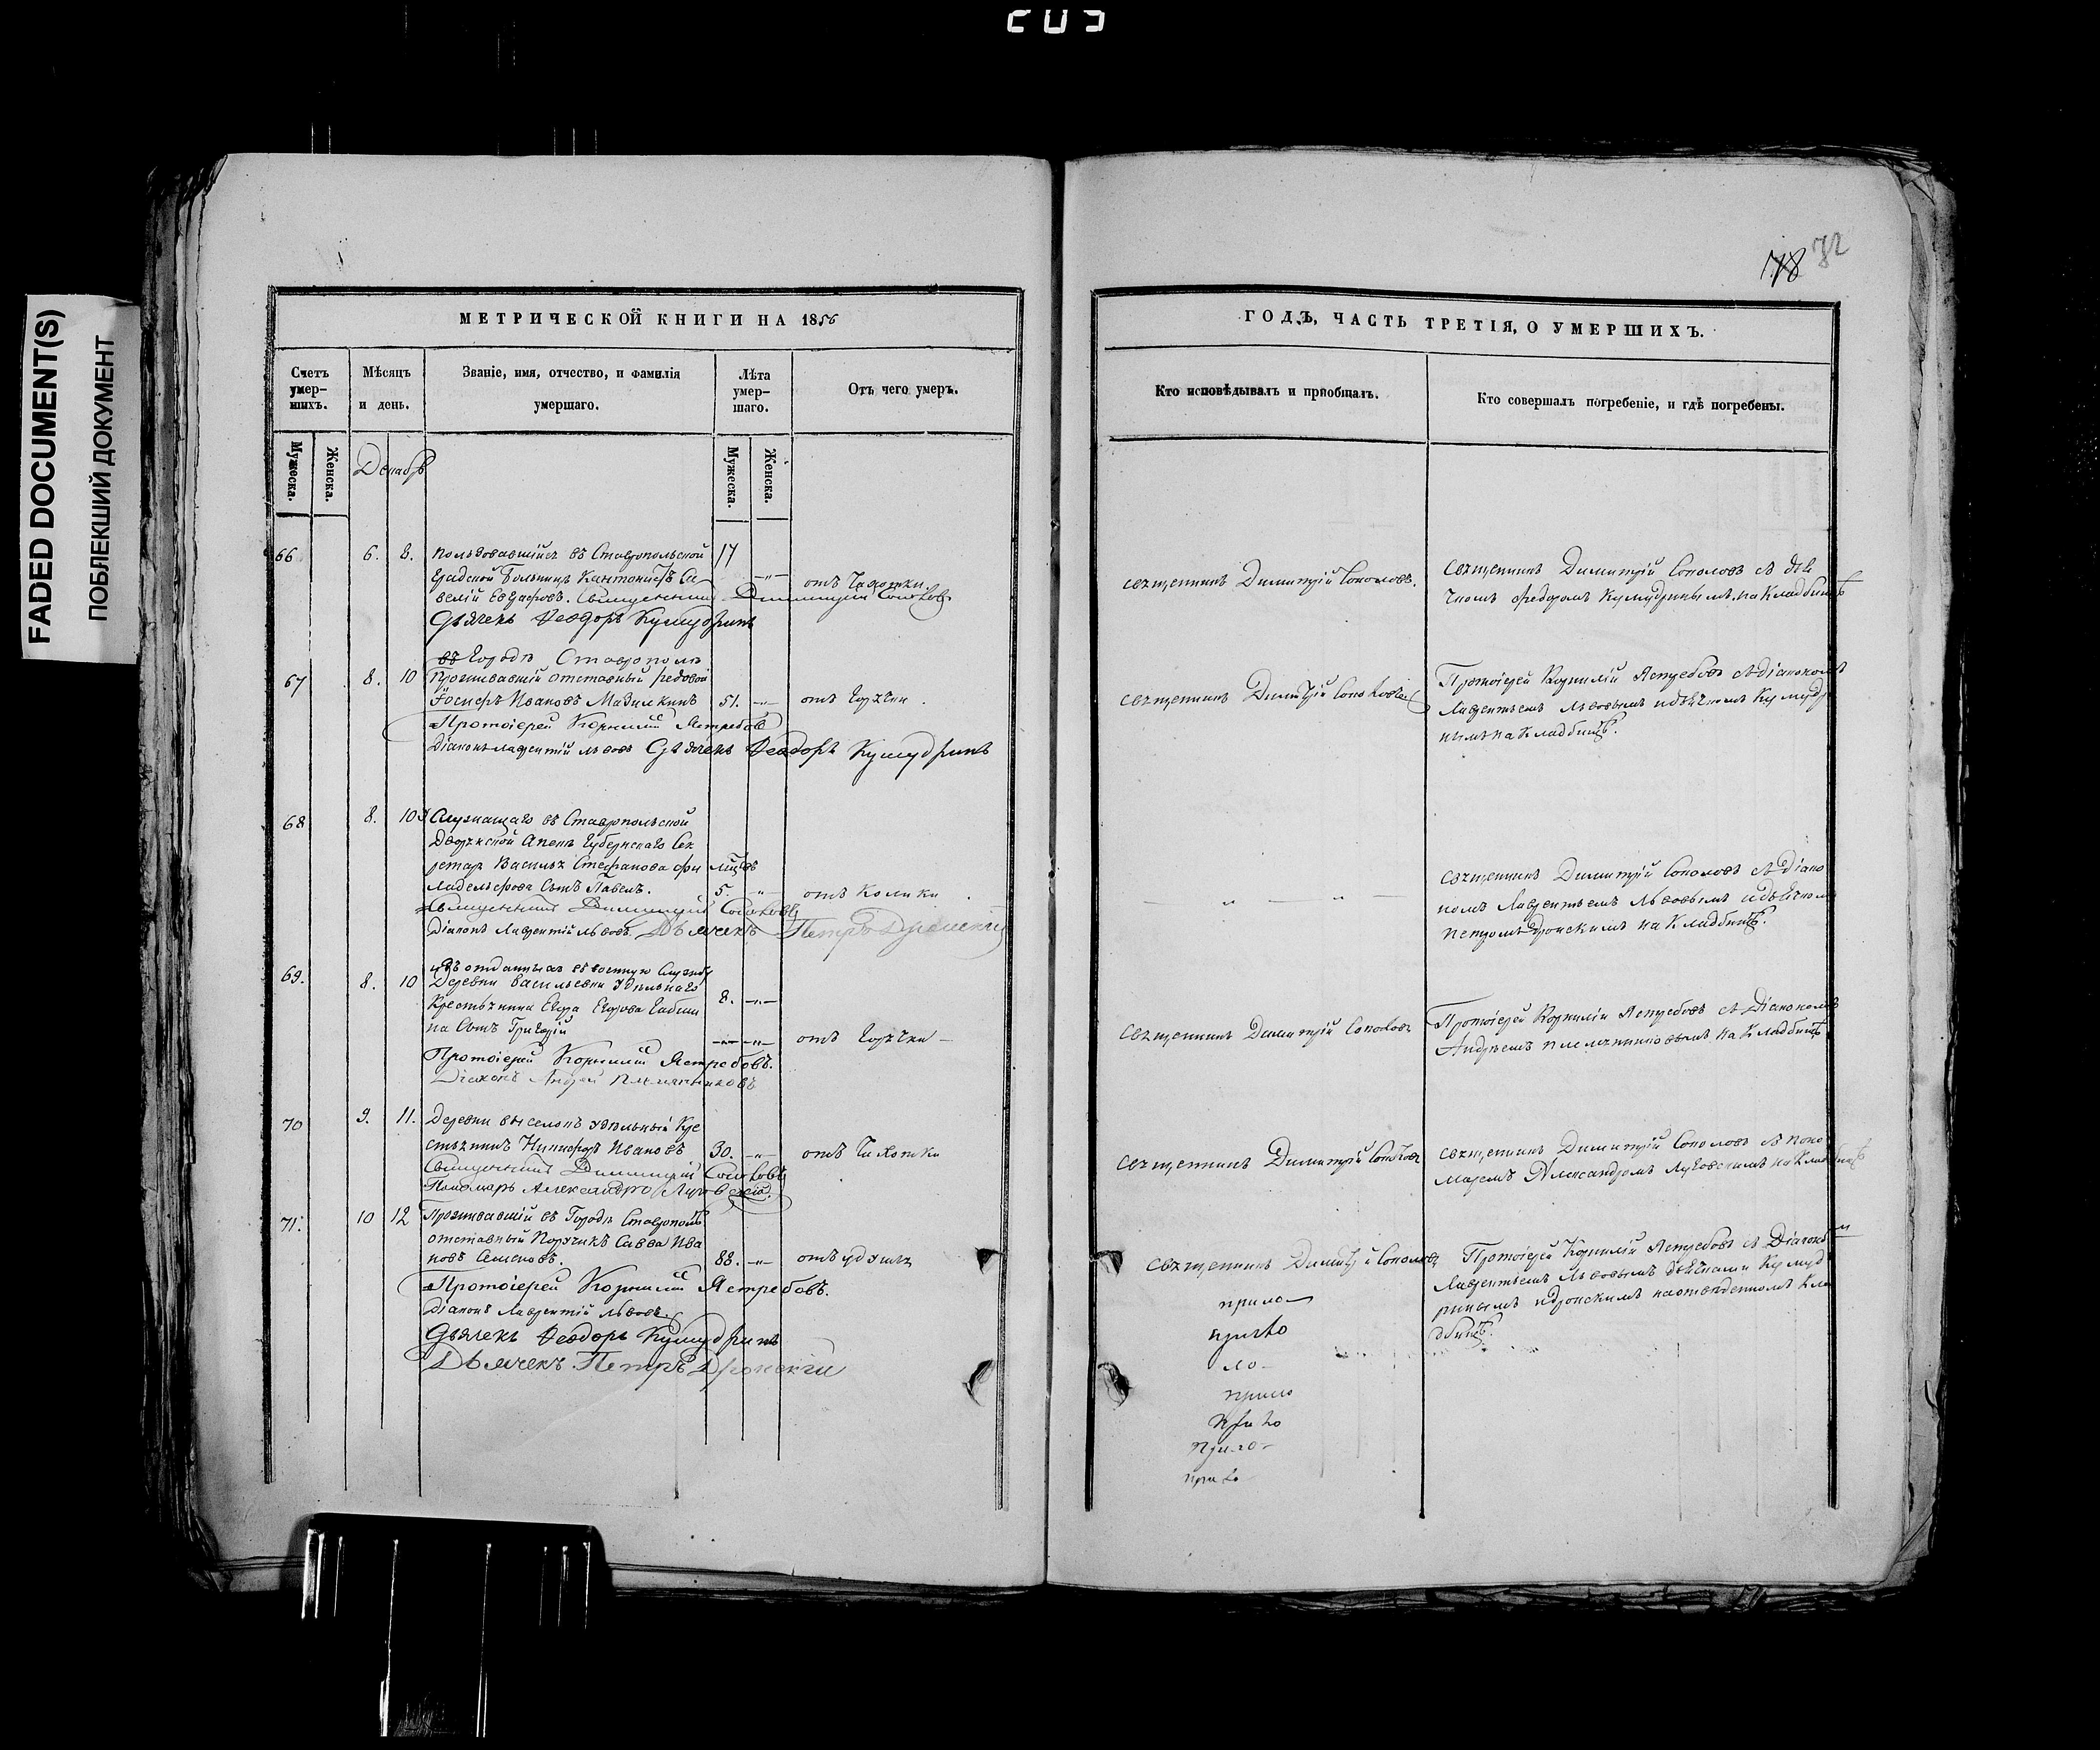 FADED DOCUMENT(S)
ПОБЛЕКШИЙ ДОКУМЕНТ
МЕТРИЧЕСКОЙ КНИГИ НА 1856
Счетъ умер-шихъ.
Мѣсяцъ и день.
Званіе, имя, отчество, и фамилія умершаго.
Лѣта умер-шаго.
Отъ чего умеръ.
Мужеска.
Женска.
Мужеска.
Женска.
Декабрь
66 6. 8. пользовавшійся въ Ставропольской 17
Градской Больницѣ Кантонистъ Са
велій Евграфовъ. Священникъ Димитрій Соколовъ
отъ Чахотки.
Дьячекъ Ѳеодоръ Кумудринъ
въ Городѣ Ставрополѣ
67 8. 10 Проживавшій отставный рядовой
Іосифъ Ивановъ Мазилкинъ 51. отъ Горячки.
Протоіерей Корнилій Ястребовъ
Діаконъ Лаврентій Львовъ Дьячекъ Ѳеодоръ Кумудринъ
68 8. 10 Служащаго въ Ставропольской
Дворянской Опекѣ Губернскаго Сек
ретаря Василья Стефанова Фи
ладельфова Сынъ Павелъ. 5. отъ Колики
Священникъ Димитрій Соколовъ
Діаконъ Лаврентій Львовъ. Дьячекъ Петръ Дронскій
69. 8. 10 изъ отданныхъ въ военную Службу
Деревни Васильевки Удѣльнаго
Крестьянина Егора Егорова 8.
на Сынъ Григорій отъ Горячки
Протоіерей Корнилій Ястребовъ.
Діаконъ Андрей Племянниковъ
70 9. 11. Деревни выселокъ удѣльный Кре
стьянинъ Никифоръ Ивановъ 30. отъ Чахотки
Священникъ Димитрій Соколовъ
Пономарь Александръ Луговскій.
71. 10 12 Проживавшій въ Городѣ Ставрополѣ
отставный Поручикъ Савва Ива
новъ Семеновъ. 88. отъ удушья
Протоіерей Корнилій Ястребовъ.
Діаконъ Лаврентій Львовъ
Дьячекъ Ѳеодоръ Кумудринъ
Дьячекъ Петръ Дронскій
78 72
ГОДЪ, ЧАСТЬ ТРЕТІЯ, О УМЕРШИХЪ.
Кто исповѣдывалъ и пріобщалъ.
Кто совершалъ погребеніе, и гдѣ погребены.
священникъ Димитрій Соколовъ.
священникъ Димитрій Соколовъ съ дья
чкомъ Федоромъ Кумудринымъ. на Кладбищѣ
священникъ Димитрій Соколовъ
Протоіерей Корнилій Ястребовъ съ діакономъ
Лаврентьемъ Львовымъ и дьячкомъ Кумудри
нымъ на Кладбищѣ.
священникъ Димитрій Соколовъ съ Діако
номъ Лаврентьемъ Львовымъ и дьячкомъ
петромъ дронскимъ на Кладбищѣ.
священникъ Димитрій Соколовъ
Протоіерей Корнилій Ястребовъ съ Діакономъ
Андреемъ племянниковымъ на Кладбищѣ
священникъ Димитрій Соколовъ
священникъ Димитрій Соколовъ съ поно
маремъ Александромъ Луговскимъ на Кладбищѣ
священникъ Димитрій Соколовъ
Протоіерей Корнилій Ястребовъ съ Діакономъ
Лаврентьемъ Львовымъ дьячками Кумуд
ринымъ и дронскимъ на отведенномъ Кла
дбищѣ.